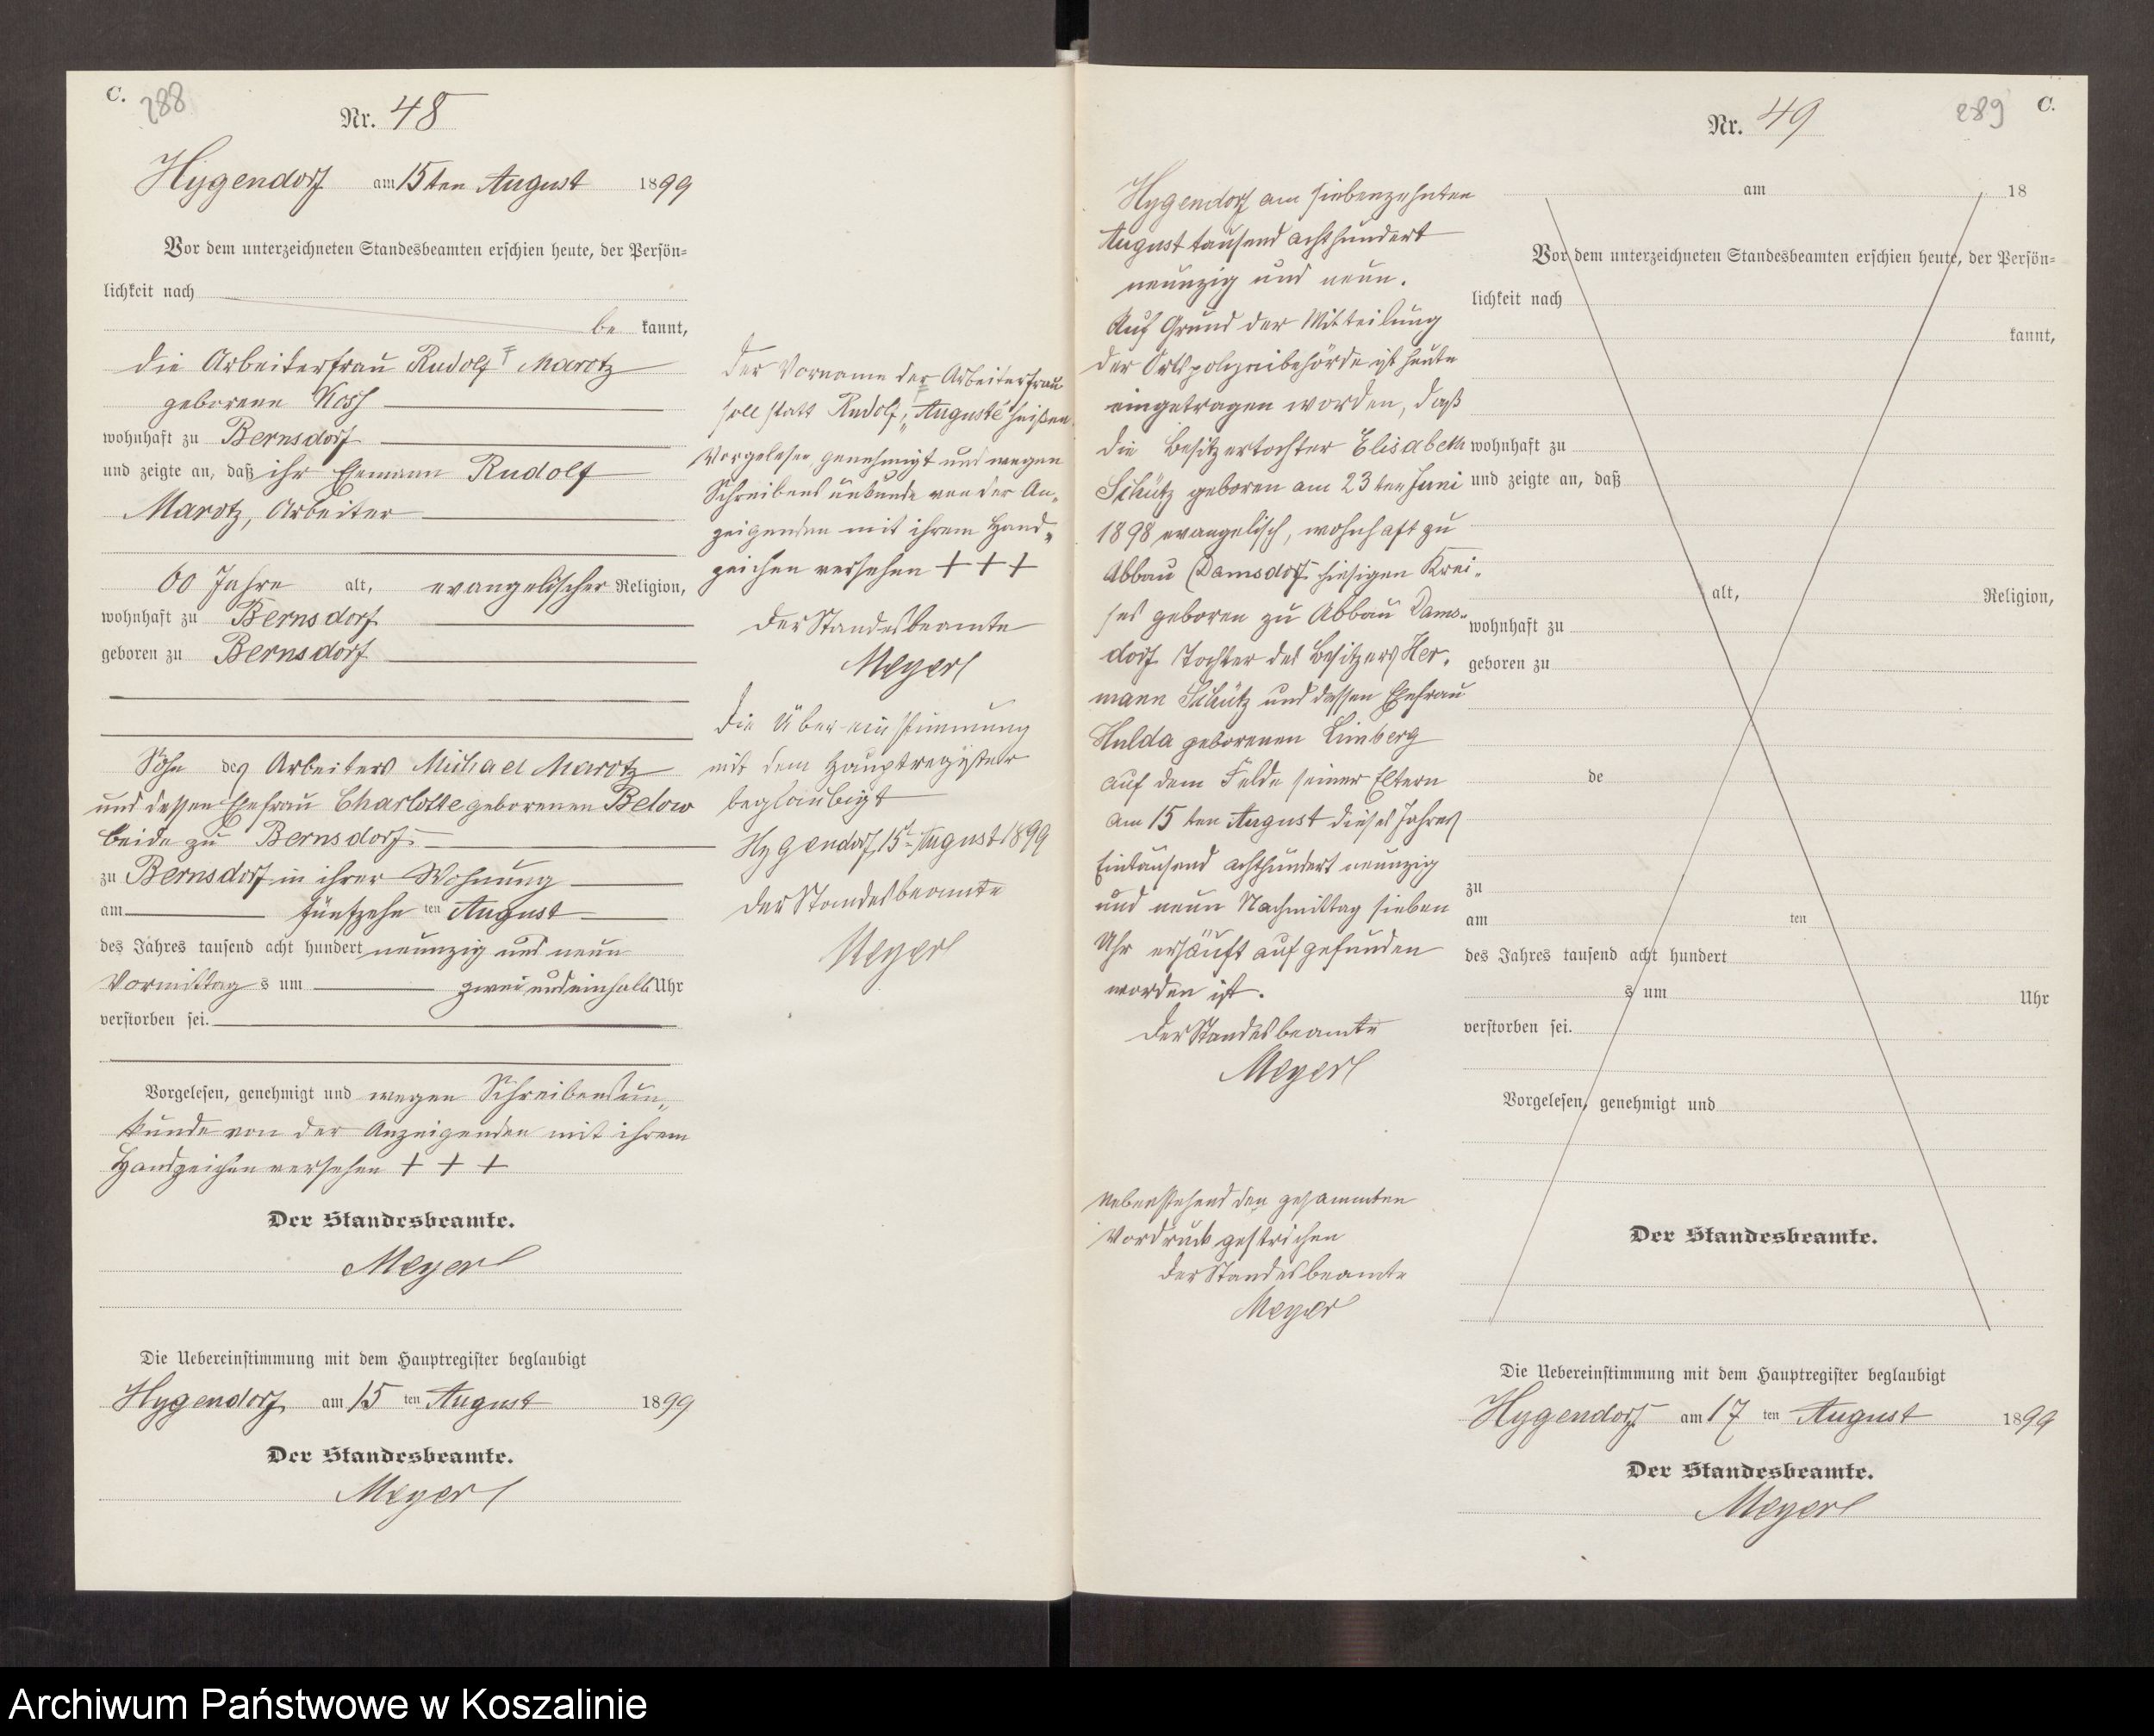 C.
288
Nr. 48
Hygendorf am 15ten August 1899
Vor dem unterzeichneten Standesbeamten erschien heute, der Persön-
lichkeit nach
be kannt,
die Arbeiterfrau Rudolf Marotz
geborene Koss
wohnhaft zu Bernsdorf
und zeigte an, daß ihr Ehemann Rudolf
Marotz, Arbeiter
60 Jahre alt, evangelischer Religion,
wohnhaft zu Bernsdorf
geboren zu Bernsdorf
Sohn des Arbeiters Michael Marotz
und dessen Ehefrau Charlotte geborenen Below
beide zu Bernsdorf
zu Bernsdorf in ihrer Wohnung
am fünfzehn ten August
des Jahres tausend acht hundert neunzig und neun
Vormittag s um zwei und einhalb Uhr
verstorben sei.
Vorgelesen, genehmigt und wegen Schreibensun-
kunde von der Anzeigenden mit ihrem
Handzeichen versehen + + +
Der Standesbeamte.
Meyer
Die Uebereinstimmung mit dem Hauptregister beglaubigt
Hygendorf am 15 ten August 1899
Der Standesbeamte.
Meyer
Der Vorname der Arbeiterfrau
soll statt Rudolf, "Auguste" heißen
Vorgelesen, genehmigt und wegen
Schreibensunkunde von der An-
zeigenden mit ihrem Hand-
zeichen versehen + + +
Der Standesbeamte
Meyer
Die Übereinstimmung
mit dem Hauptregister
beglaubigt
Hygendorf, 15t August 1899
Der Standesbeamte
Meyer
Nr. 49
289
C.
Hygendorf am siebenzehnten
August tausend achthundert
neunzig und neun.
Auf Grund der Mitteilung
der Ortspolizeibehörde ist heute
eingetragen worden, daß
die Besitzertochter Elisabeth
Schütz geboren am 23ten Juni
1898 evangelisch, wohnhaft zu
Abbau Damsdorf hiesigen Krei-
ses geboren zu Abbau Dams-
dorf Tochter des Besitzers Her-
mann Schütz und dessen Ehefrau
Hulda geborenen Limberg
auf dem Felde seiner Eltern
am 15ten August dieses Jahres
Eintausend achthundert neunzig
und neun Nachmittag sieben
Uhr ersäuft aufgefunden
worden ist.
Der Standesbeamte
Meyer
Nebenstehend den gesammten
Vordruck gestrichen
Der Standesbeamte
Meyer
am 18
Vor dem unterzeichneten Standesbeamten erschien heute, der Persön-
lichkeit nach
kannt,
wohnhaft zu
und zeigte an, daß
alt, Religion,
wohnhaft zu
geboren zu
de
zu
am ten
des Jahres tausend acht hundert
s um Uhr
verstorben sei.
Vorgelesen, genehmigt und
Der Standesbeamte.
Die Uebereinstimmung mit dem Hauptregister beglaubigt
Hygendorf am 17 ten August 1899
Der Standesbeamte.
Meyer
Archiwum Państwowe w Koszalinie